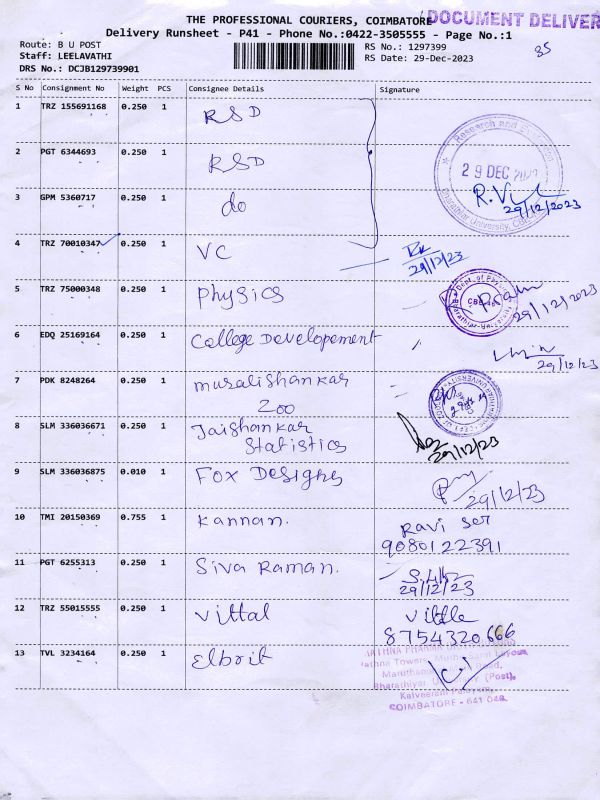 THE PROFESSIONAL COURIERS, COIMBATORE
DOCUMENT DELIVER
Delivery Runsheet - P41 - Phone No.:0422-3505555 - Page No.:1
Route: B U POST
RS No.: 1297399
35
Staff: LEELAVATHI
RS Date: 29-Dec-2023
DRS No.: DCJB129739901
S No Consignment No Weight PCS Consignee Details Signature
1 TRZ 155691168 0.250 1 RSD
2 PGT 6344693 0.250 1 RSD
Research and
29 DEC 202
Bharathiar University, C
R.V
29/12/2023
3 GPM 5360717 0.250 1 do
4 TRZ 70010347 0.250 1 VC
29/12/23
5 TRZ 75000348 0.250 1 Physics
Dept. of Phy
CBE
Bharathiar University
29/12/2023
6 EDQ 25169164 0.250 1 College Developement
29/12/23
7 PDK 8248264 0.250 1 muralishankar
Zoo
8 SLM 336036671 0.250 1 Jaishankar
Statistics
29/12/23
9 SLM 336036875 0.010 1 Fox Designs
29/12/23
10 TMI 20150369 0.755 1 Kannan.
Ravi ser
9080122391
11 PGT 6255313 0.250 1 Siva Raman.
29/12/23
12 TRZ 55015555 0.250 1 Vittal
8754320666
13 TVL 3234164 0.250 1 Elbrit
Towers,
Road,
Bharathiyar (Post),
Kalveeram Palayam,
COIMBATORE - 641 046.